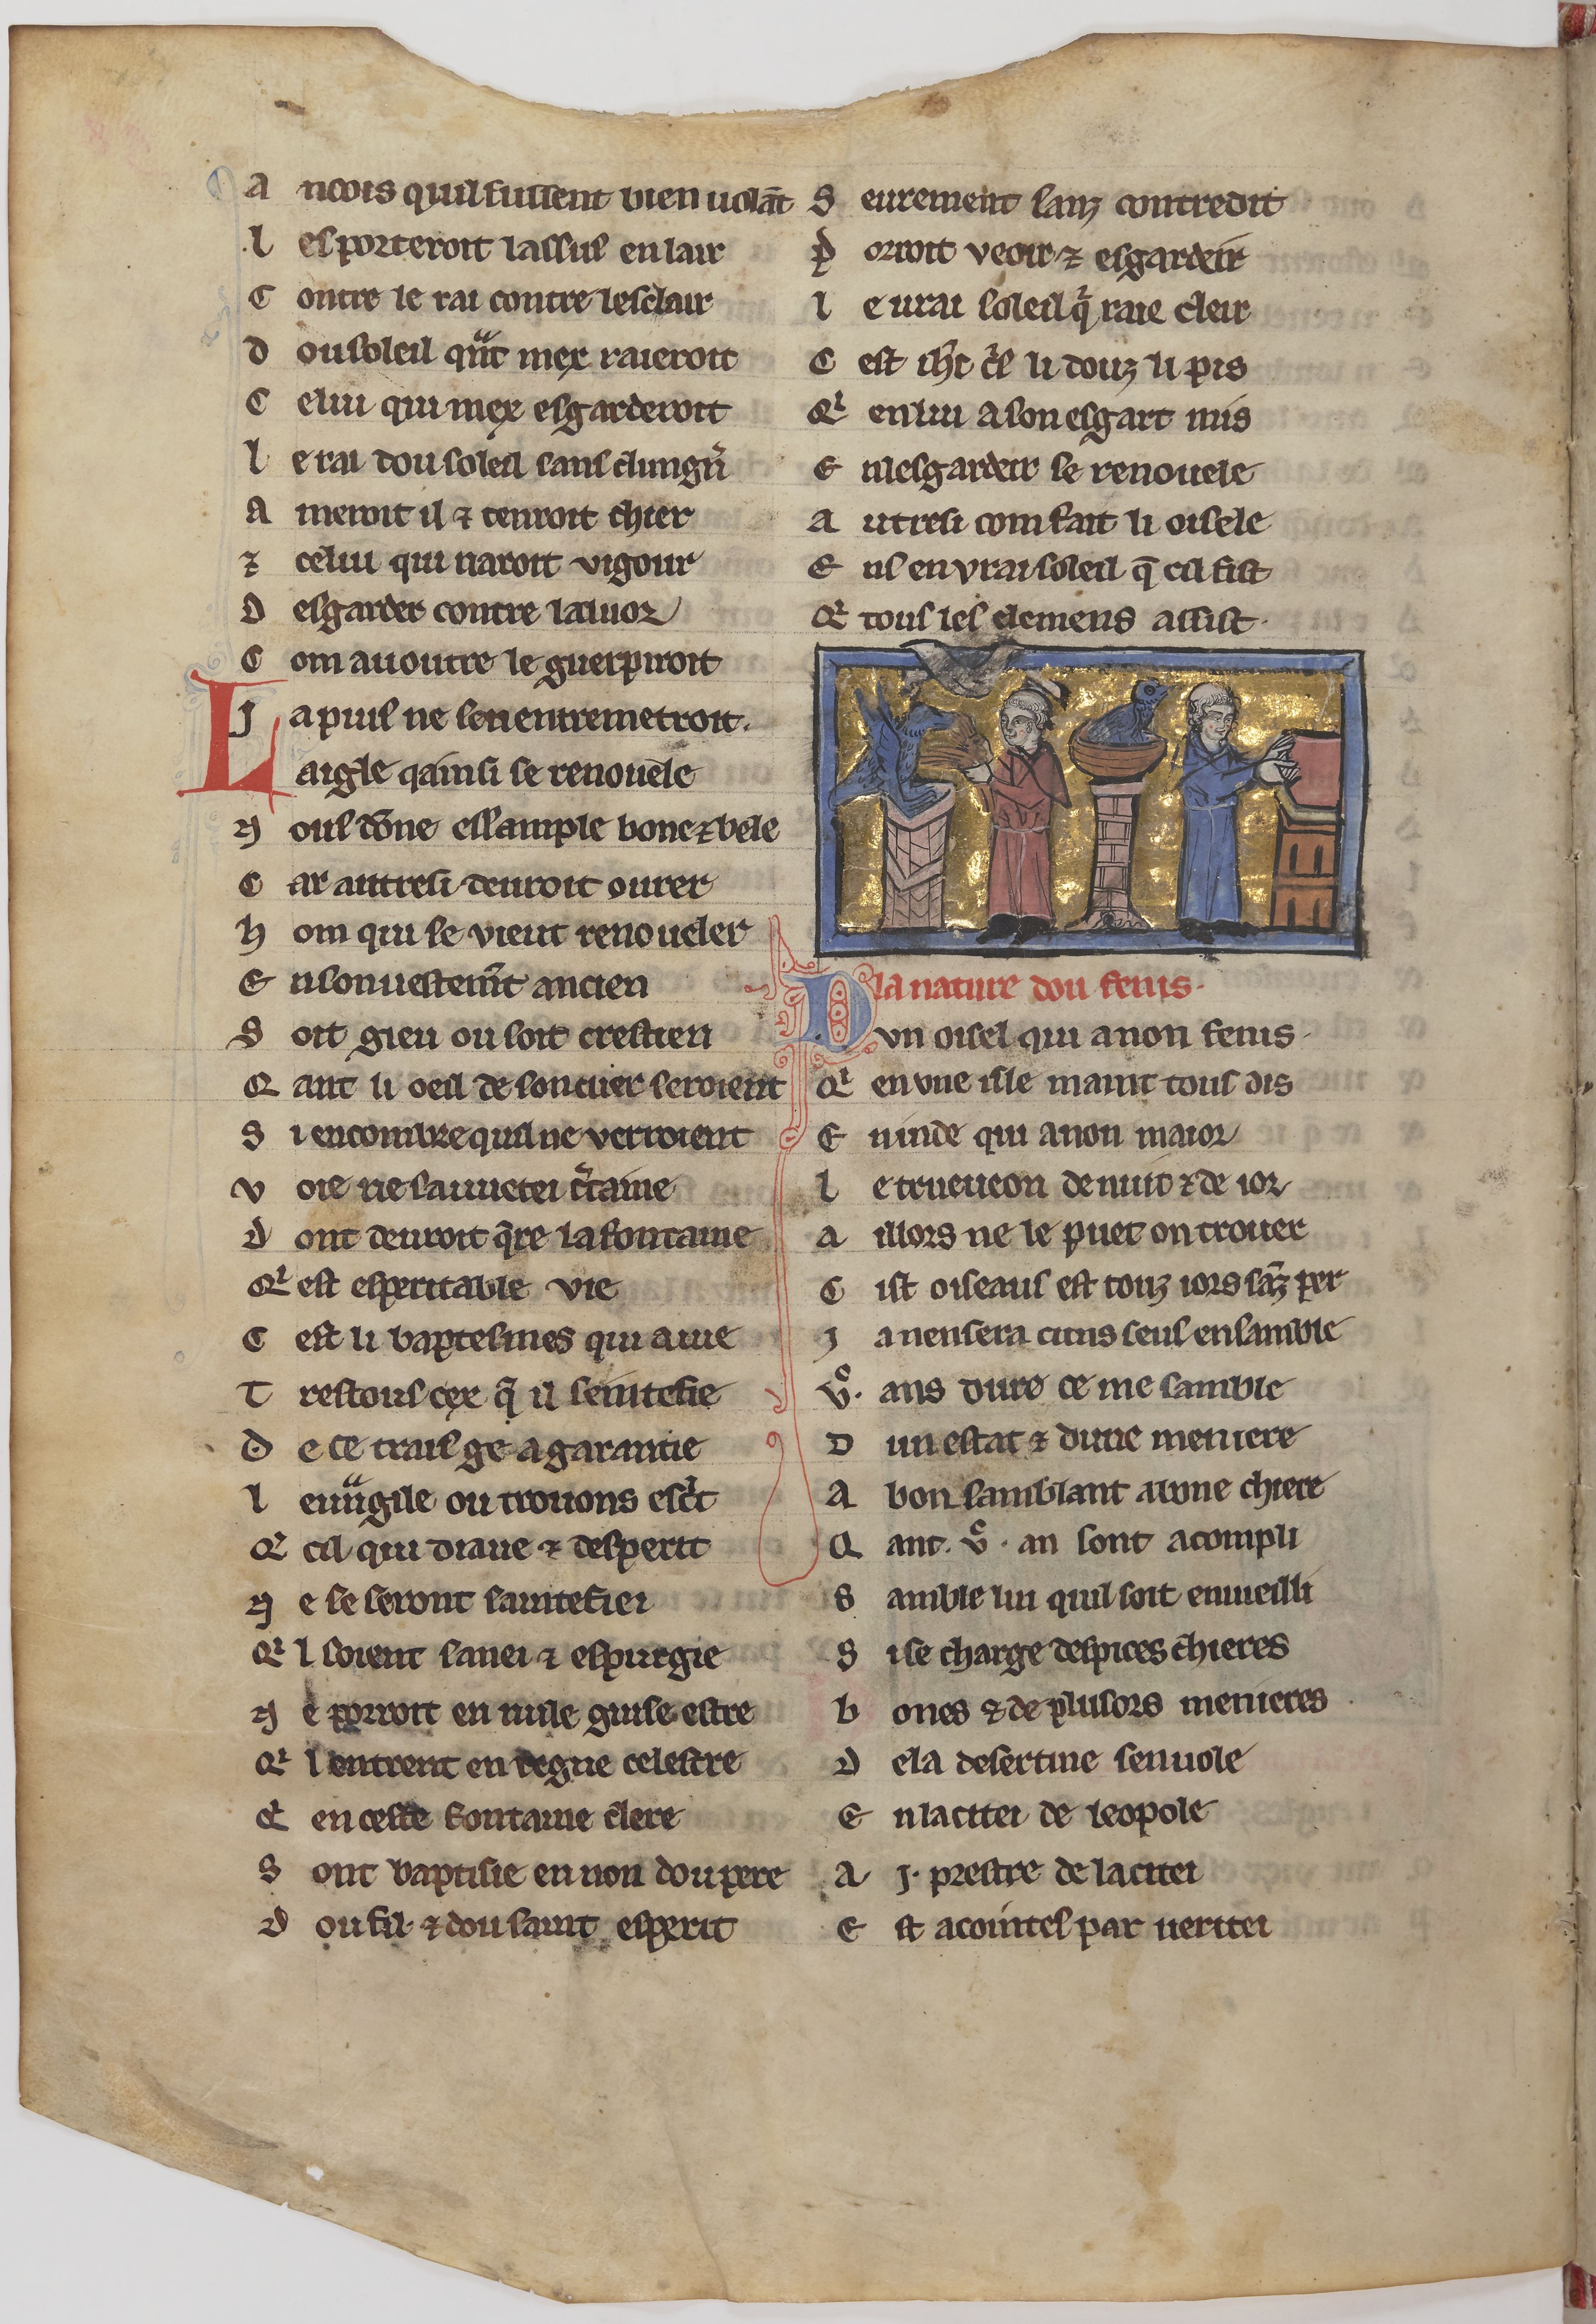 A ncois quil fussent bien uolāt
L es porteroit lassus en lair
C ontre le rai contre lesclair
D ou soleil qͣnt mex raieroit
C elui qui mex esgarderoit
L e rai dou soleil sans clungn̄
A meroit il ⁊ tenroit chier
⁊ celui qui naroit vigour
D esgarder contre la luor
C om auoutre le guerpiroit
J a puis ne sen entremetroit.
L aigle qainsi se renouele
N ous dōne essample bone ⁊ bele
C ar autresi deuroit ourer
h om qui se vieut renoueler
E n son uestemēt ancien
S oit gieu ou soit crestien
Q ant li oeil de son cuer seroient
S i encombre quil ne verroient
V oie ne sauuetei c̄taine
D ont deuroit q̄re la fontaine
Qⁱ est esperitable vie
C est li baptesmes qui aiue
T restous cex q̄ il seintefie
D e ce trais ge a garantie
L euuͣgile ou trouons esc̄t
Qͤ cil qui diaue ⁊ desperit
N e se seront saintefiei
Qⁱ l soient sanei ⁊ espurgie
N e porroit en nule guise estre
Qⁱ l entrent en regne celestre
Qͭ en ceste fontaine clere
S ont baptisie en non dou pere
D ou fil ⁊ dou saint esperit
S eurement sanz contredit
P orroit veoir ⁊ esgardeir
L e urai soleil q̄ raie cleir
C est ih̄c c̄s li douz li pis
Qⁱ en lui a son esgart mis
E n lesgardeir se renouele
A utresi com fait li oisele
E ns en vrai soleil q̄ cil fist
Qⁱ tous les elemens assist.
D la nature dou fenis.
vn oisel qui a non fenis.
Qⁱ en vne isle maint tous dis
E n inde qui a non maior
L e trueue on de nuit ⁊ de ior
A illors ne le puet on trouer
C ist oiseaus est touz iors sāz per
J a nen sera cuns seus ensamble
.v̊. ans dure ce me samble
D un estat ⁊ dune meniere
A bon samblant a bone chiere
Q ant .v̊. an sont acompli
S amble lui quil soit enuieilli
S i se charge despices chieres
b ones ⁊ de plusors menieres
D e la desertine sen uole
E n la citei de leopole
A .j. prestre de la citei
E st acointes par ueritei